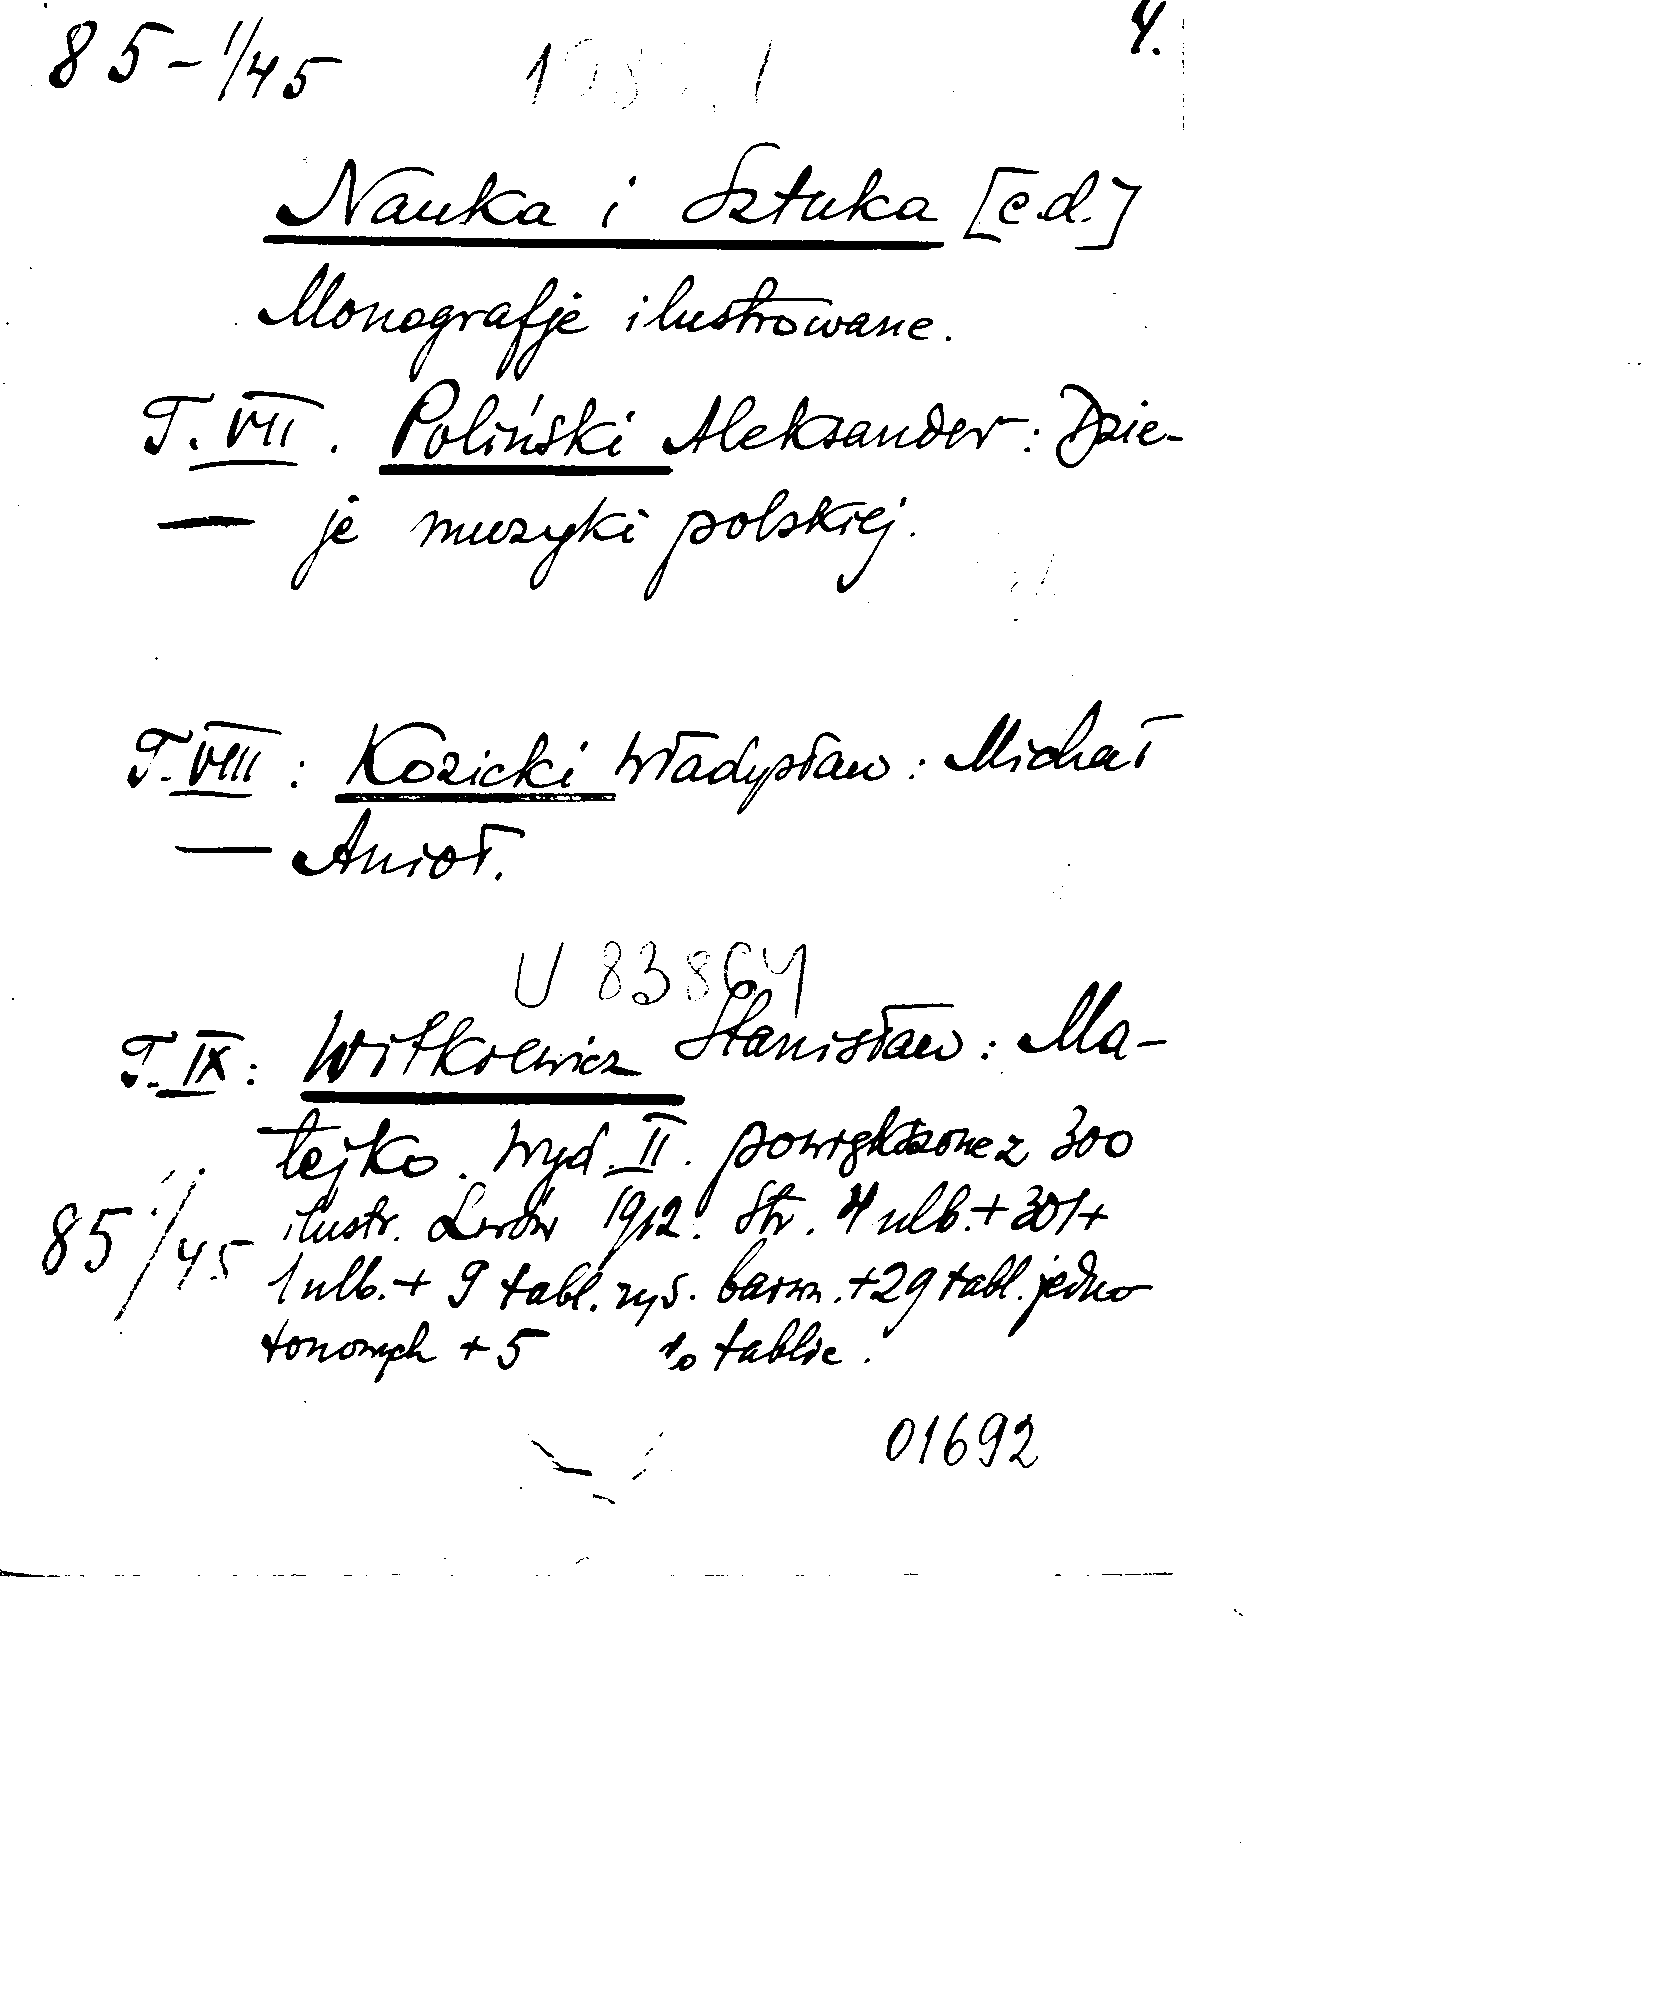 85-1/45 4.
Nauka i Sztuka [c.d.]
Monografje ilustrowane.
T. VII. Poliński Aleksander: Dzie-
— je muzyki polskiej.
T. VIII: Kozicki Władysław: Michał
— Anioł.
U 83864
T. IX: Witkiewicz Stanisław: Ma-
tejko. Wyd. II. powiększone z 300
ilustr. Lwów 1912. Str. 4 nlb. + 301 +
85/45 1 nlb. + 9 tabl. rys. barwn. + 29 tabl. jedno
tonowych + 5 tablic.
01692